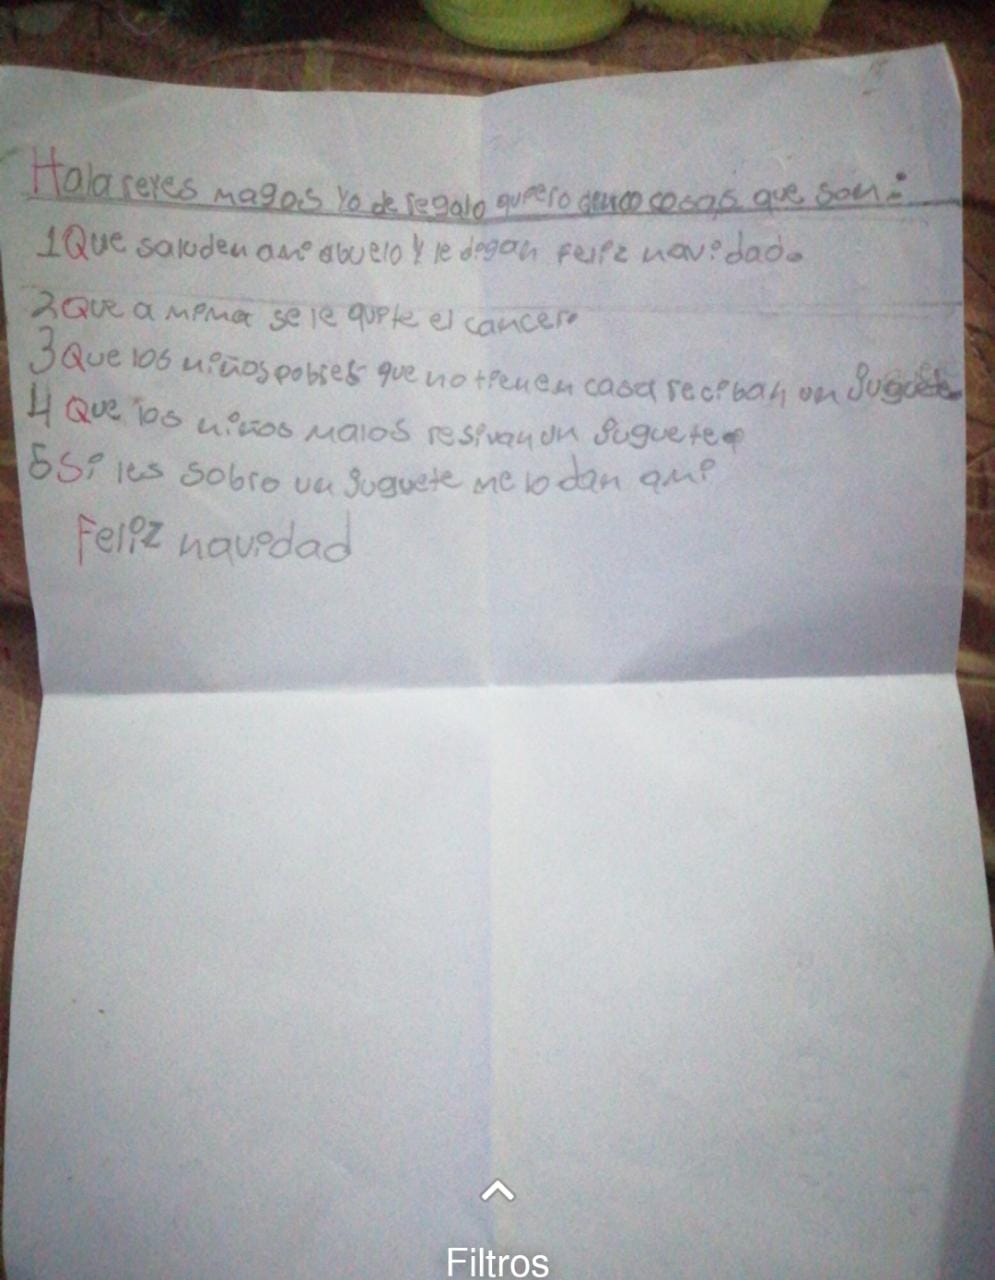 Hala reyes magos Yo de regalo quiero cosas que son:
1 Que saluden ami abuelo y le digan feliz navidad.
2 Que a mema se le quite el cancer.
3 Que los niños pobres que no tienen casa reciban un Juguete
4 Que los niños malos resivan un Juguete
5 Si les sobro un Juguete me lo dan ami
Feliz navidad
Filtros